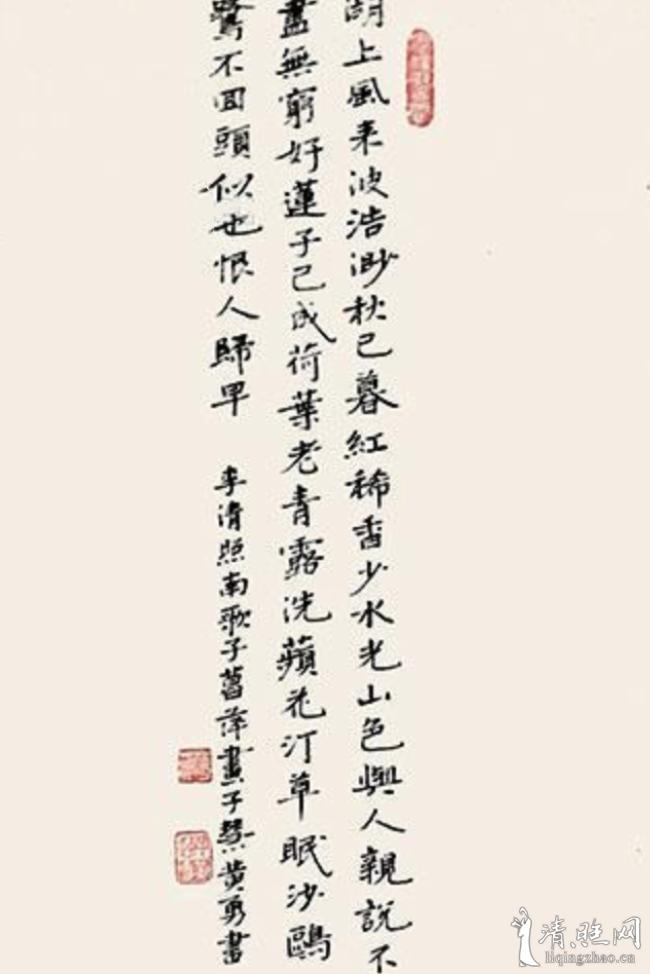 湖上風来波浩渺秋已暮紅稀香少水光山色與人親說不
盡無窮好蓮子已成荷葉老青露洗蘋花汀草眠沙鷗
鷺不回頭似也恨人歸早
李清照南歌子菖萍畫子慧黄勇書
清旺网
liqingzhao.cn